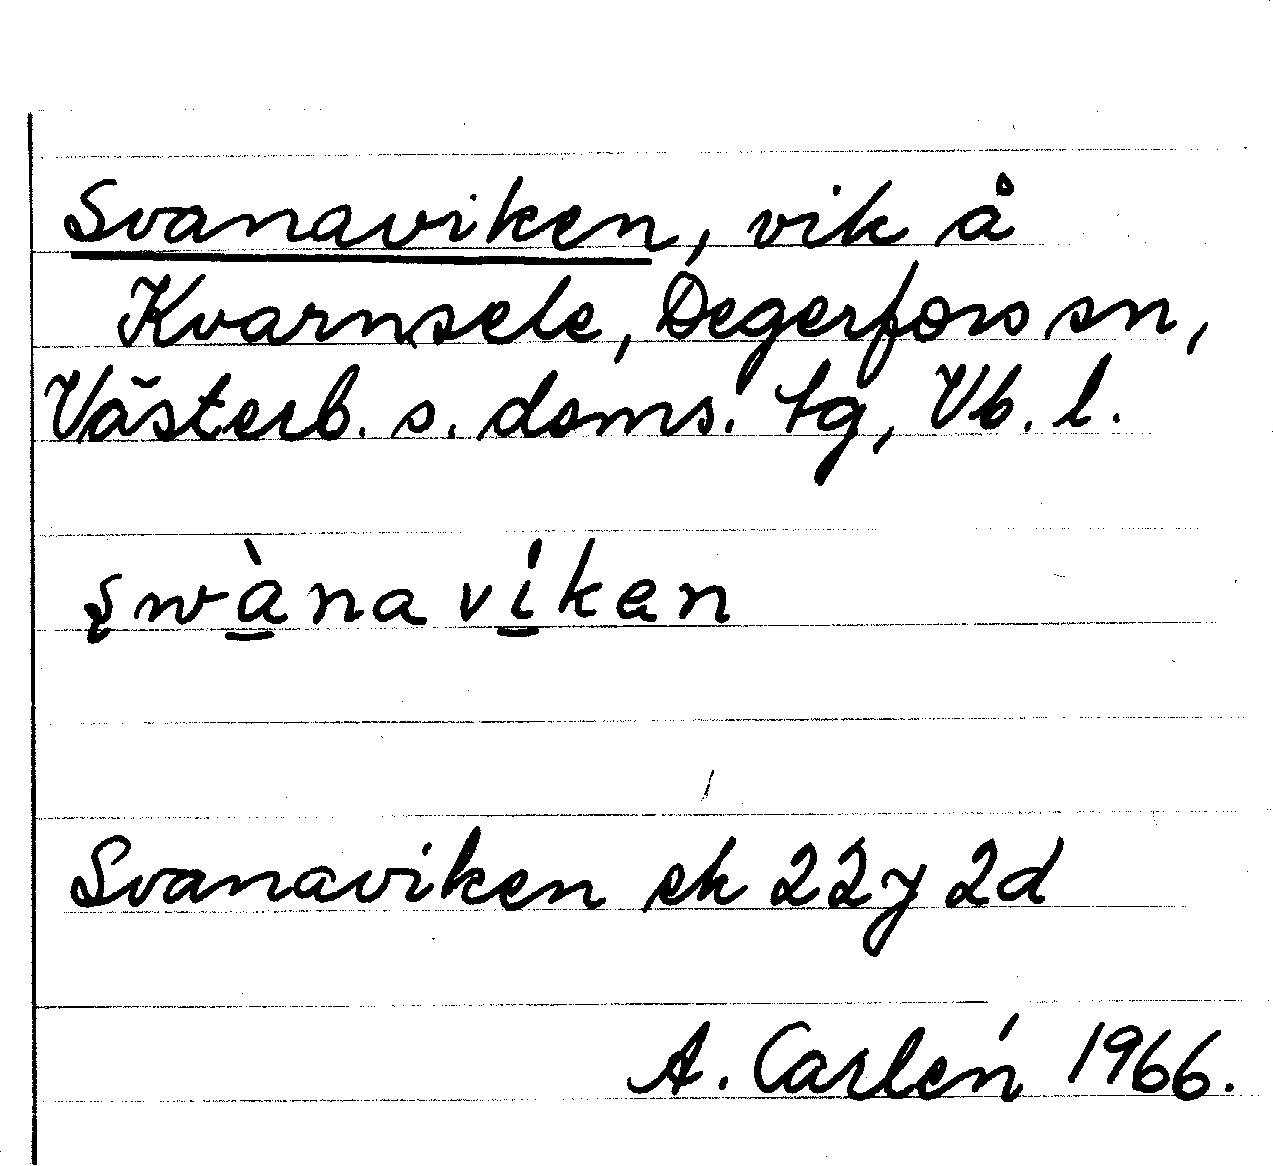 Svanaviken, vik å
Kvarnsele, Degerfors sn,
Västerb. s. doms. tg, Vb. l.
ʂwà̱na ví̱ken
Svanaviken ek 22y 2d
A. Carlén 1966.